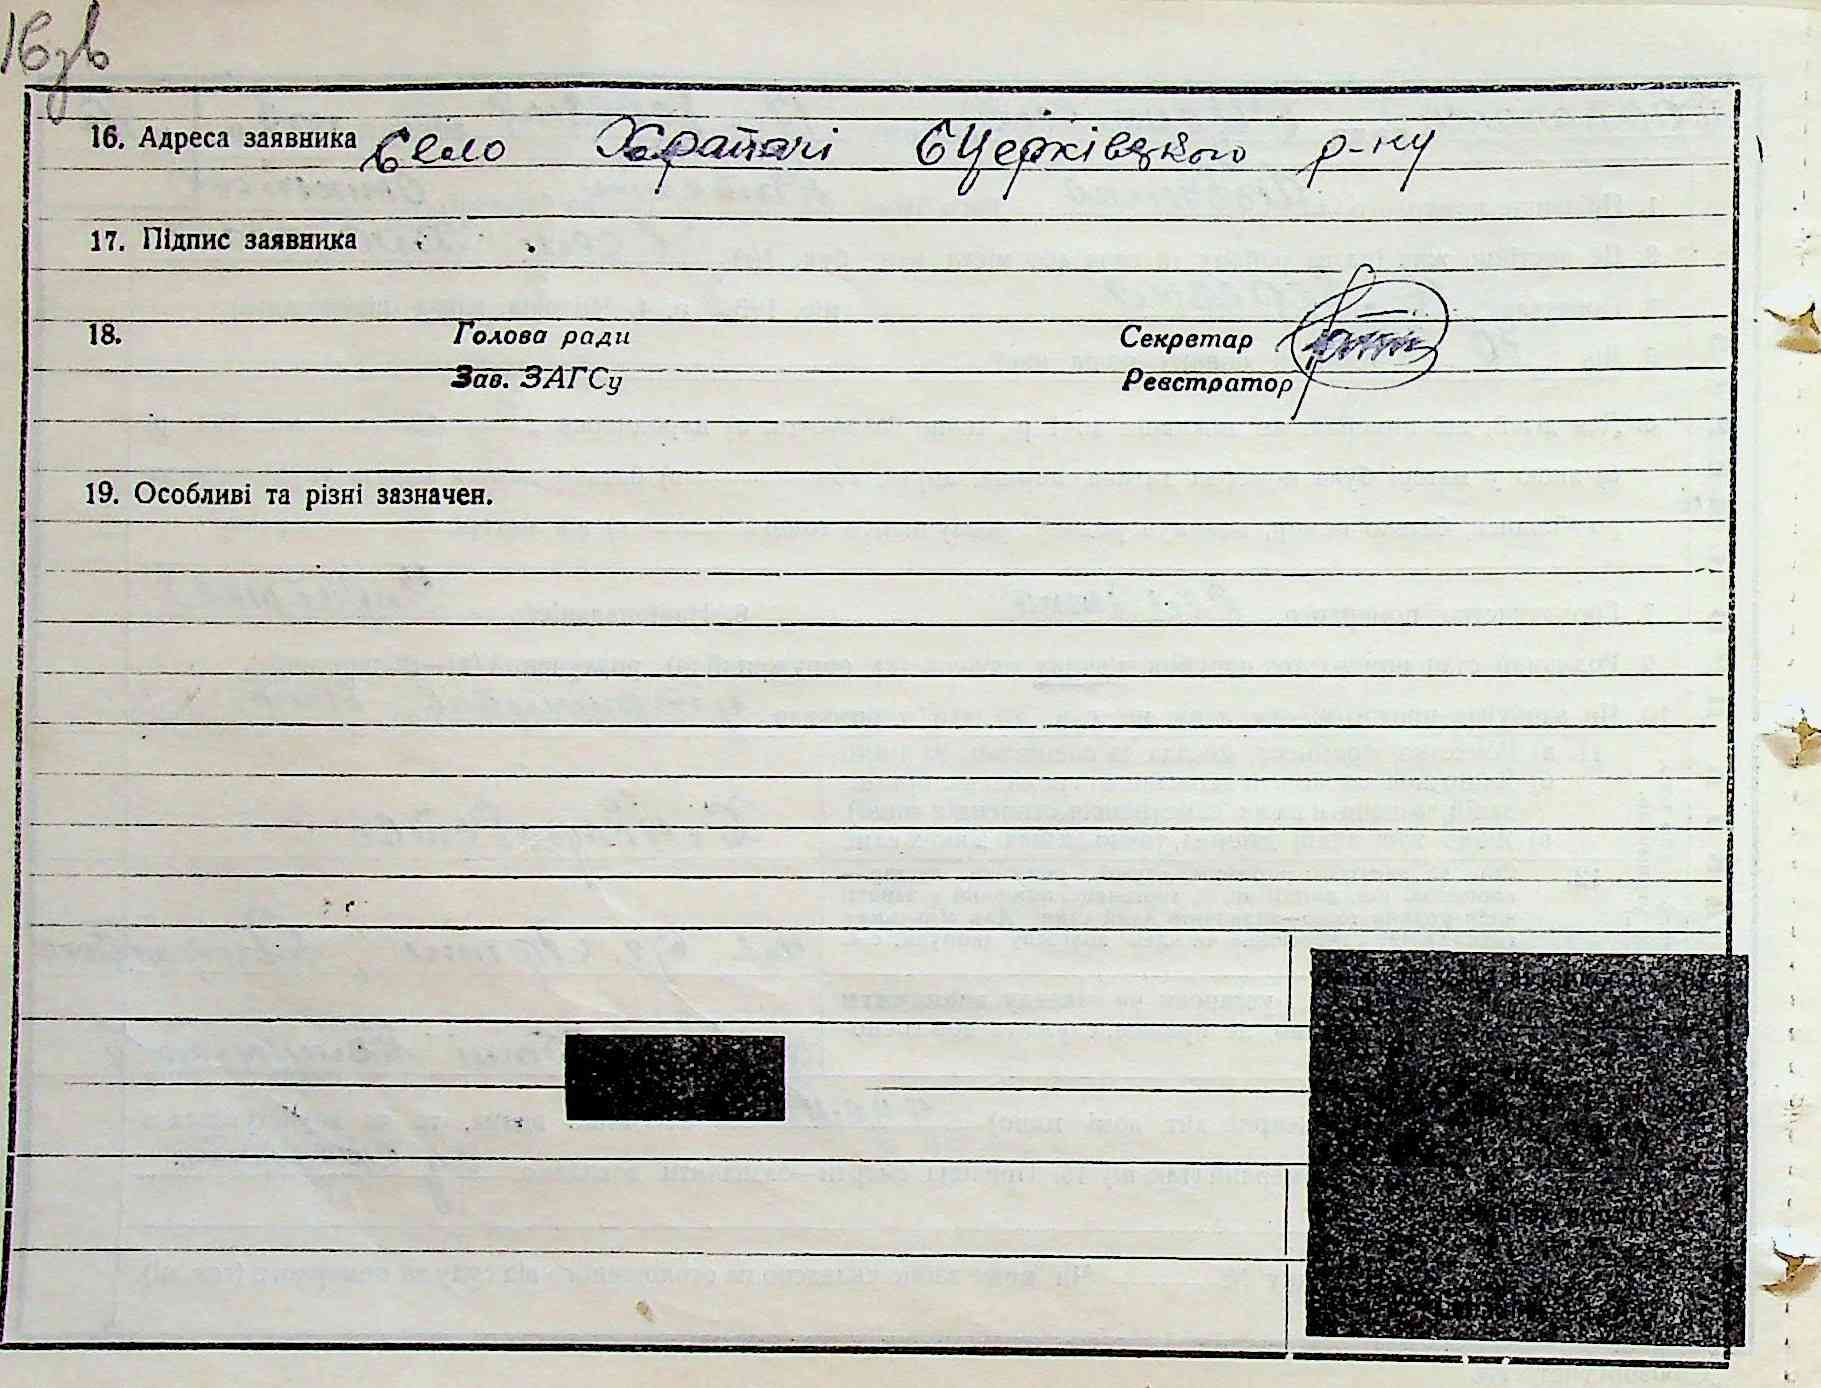 16 зв
16. Адреса заявника село Храпачі БЦерківського р-ну
17. Підпис заявника
18. Голова ради Секретар
Зав. ЗАГСу Реєстратор
19. Особливі та різні зазначен.